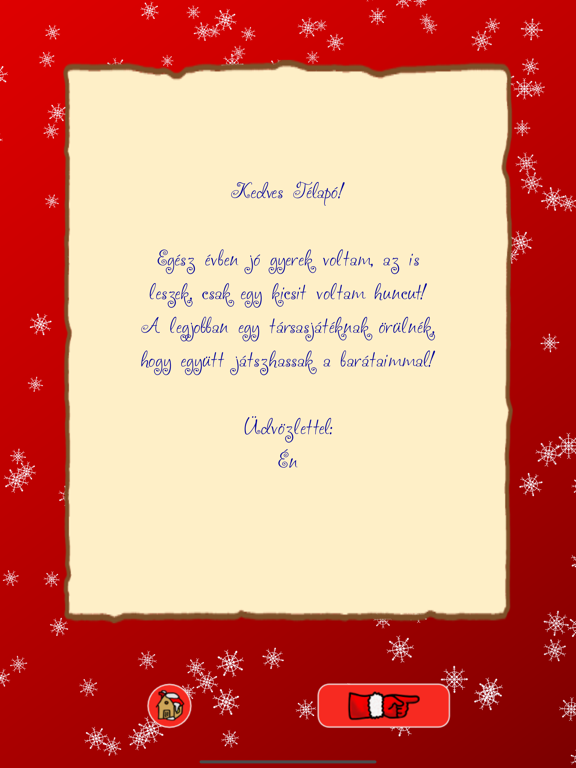 Kedves Télapó!
Egész évben jó gyerek voltam, az is
leszek, csak egy kicsit voltam huncut!
A legjobban egy társasjátéknak örülnék,
hogy együtt játszhassak a barátaimmal!
Üdvözlettel:
Én